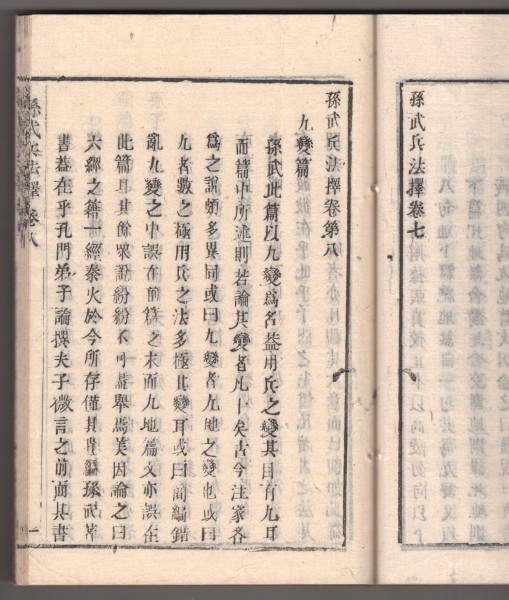 孫武兵法擇卷七
孫武兵法擇卷第八
九變篇
孫武此篇以九變爲名蓋用兵之變其目有九耳
而篇中所述則若論其變者凡十矣古今注家各
爲之說頗多異同或曰九變者九地之變也或曰
九者數之極用兵之法多極其變耳或曰簡編錯
亂九變之中誤在前篇之末而九地篇文亦誤在
此篇且其餘衆說紛紛不可盡舉焉美因論之曰
六經之籍一經秦火於今所存僅其編孫武
書蓋在乎孔門弟子論撰夫子微言之前而其書
孫武兵法擇 卷八 一